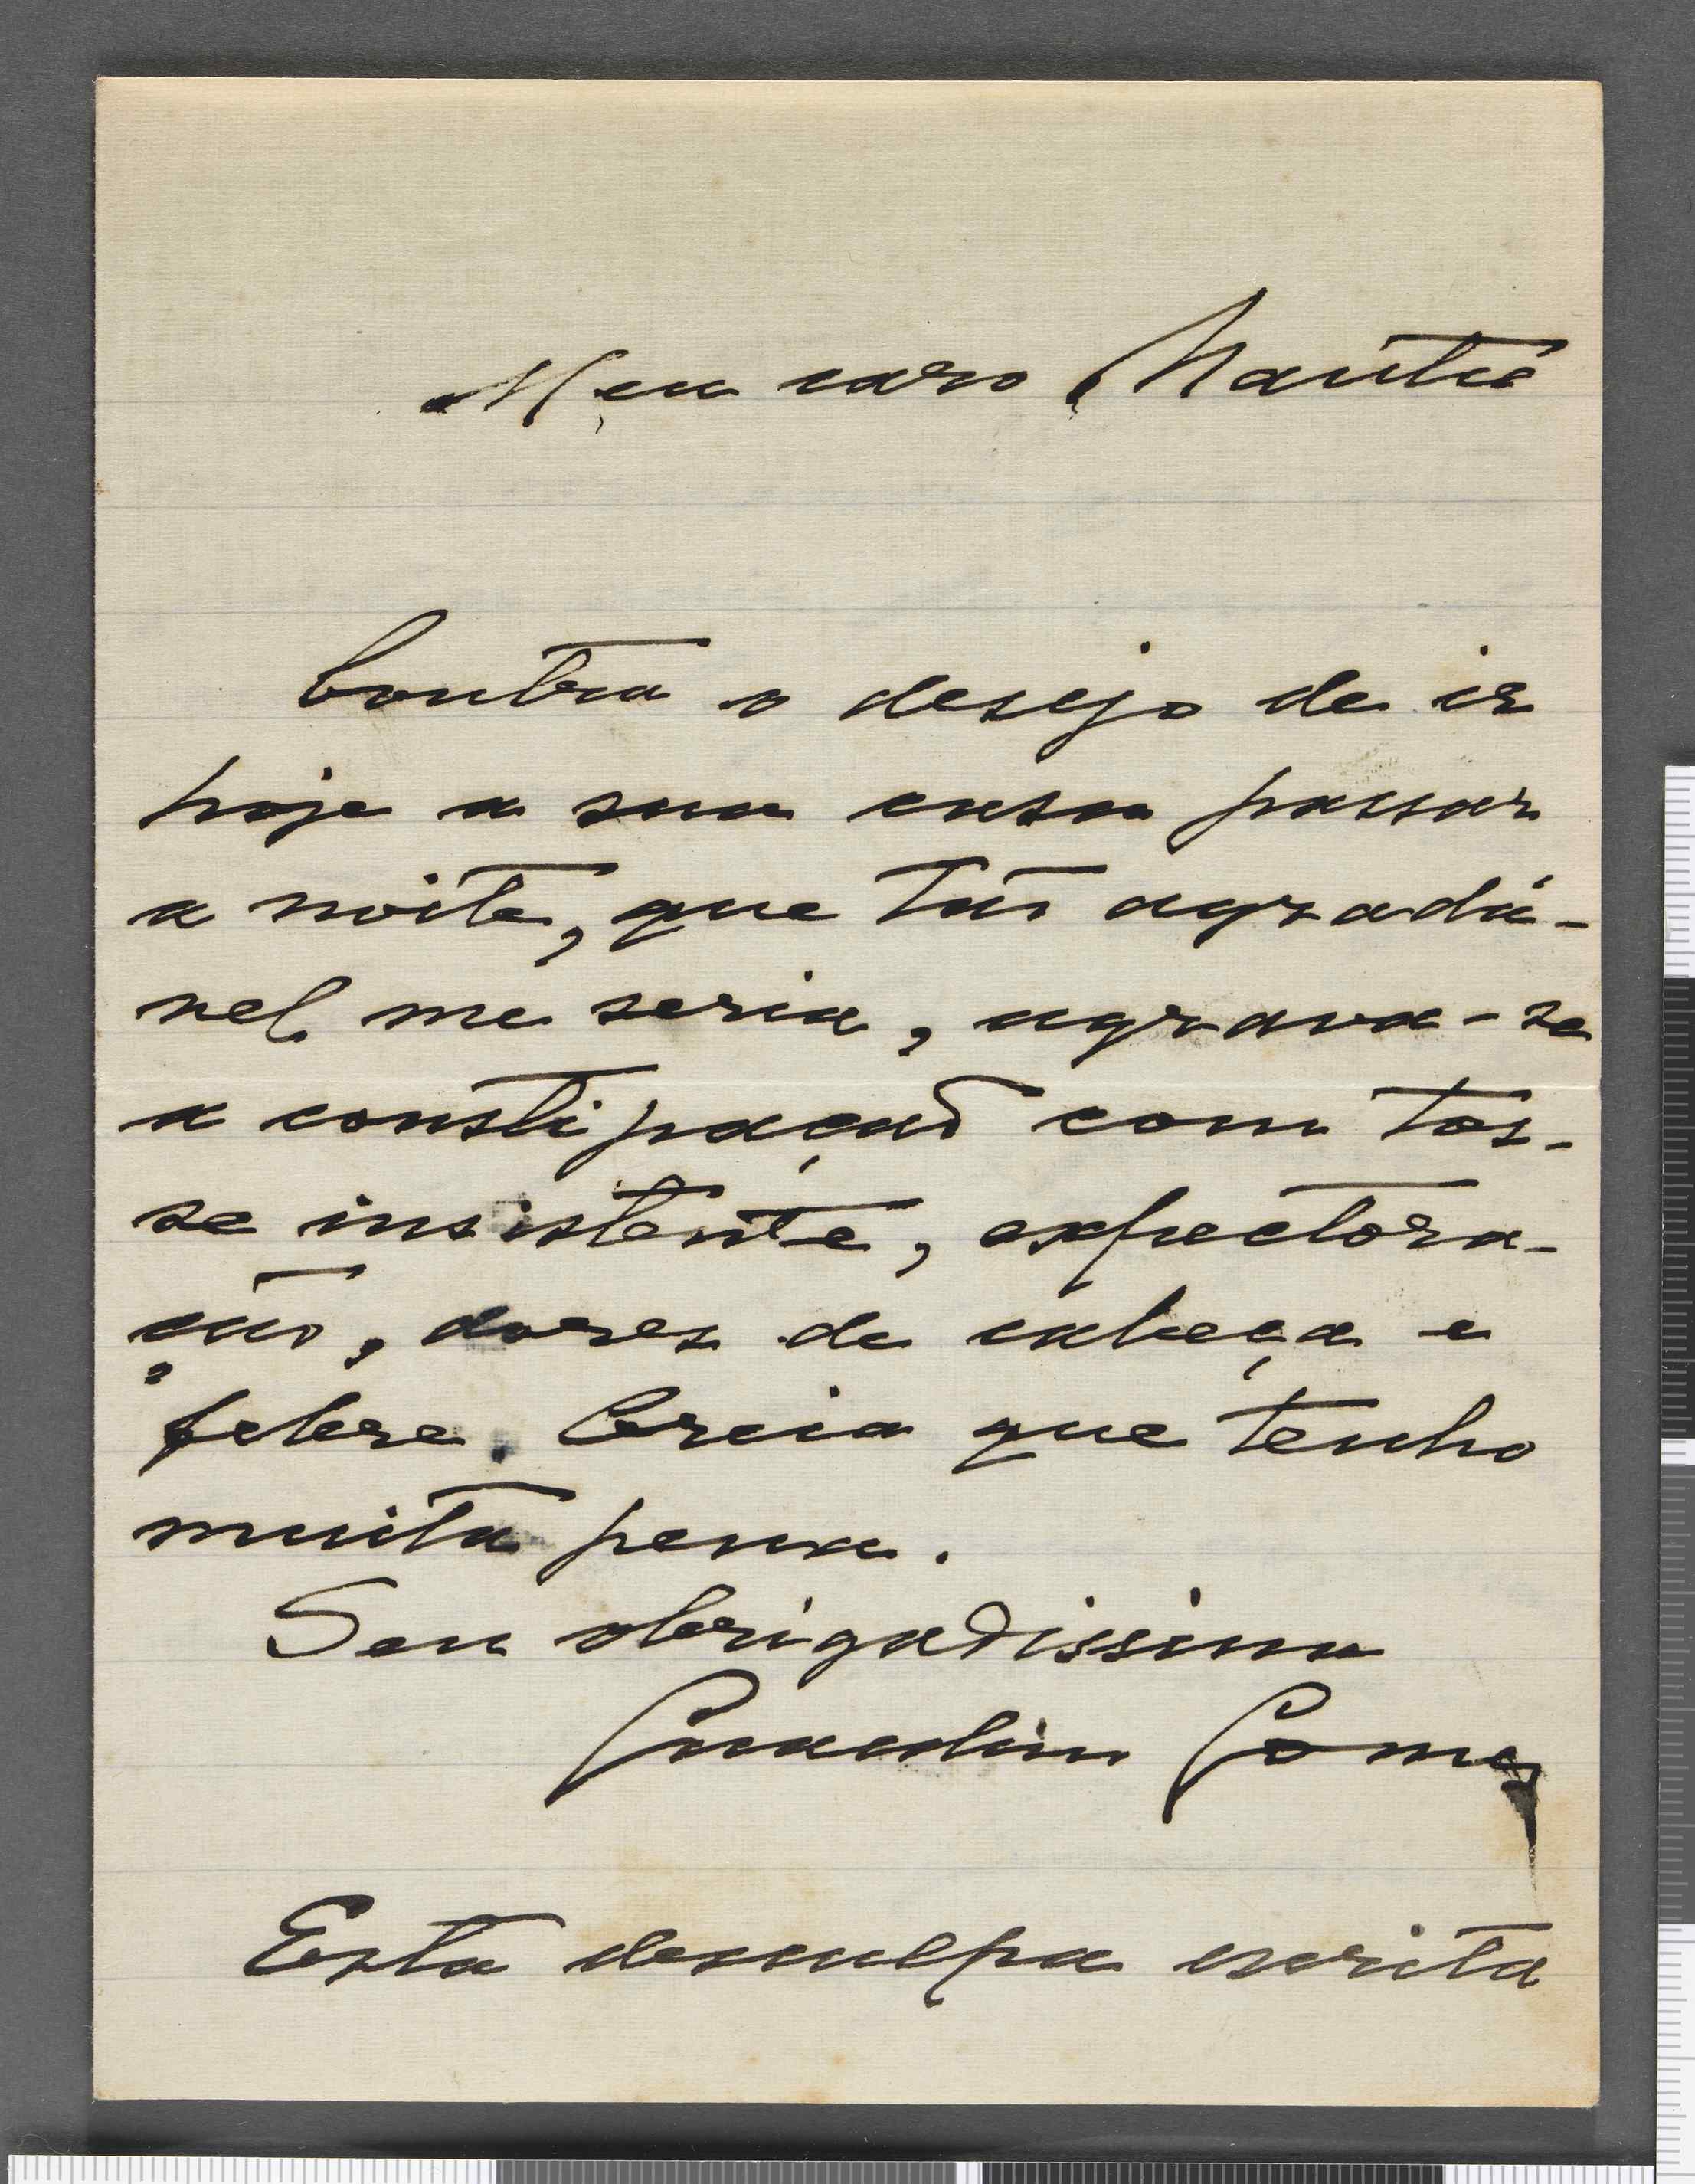 Meu caro
Contra o desejo de ir
hoje a sua casa passar
a noite, que tão agradá-
vel me seria, agrava-se
a constipação com tos-
se insistente, expectora-
ção, dores de cabeça e
febre. Creia que tenho
muita pena.
Seu obrigadissimo
Gomes
Esta desculpa escrita